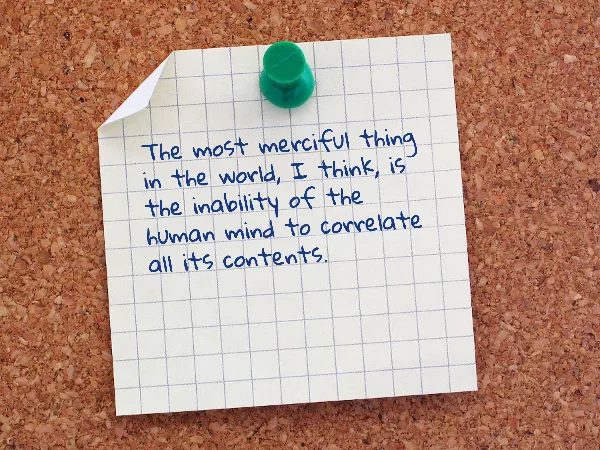 The most merciful thing
in the world, I think, is
the inability of the
human mind to correlate
all its contents.